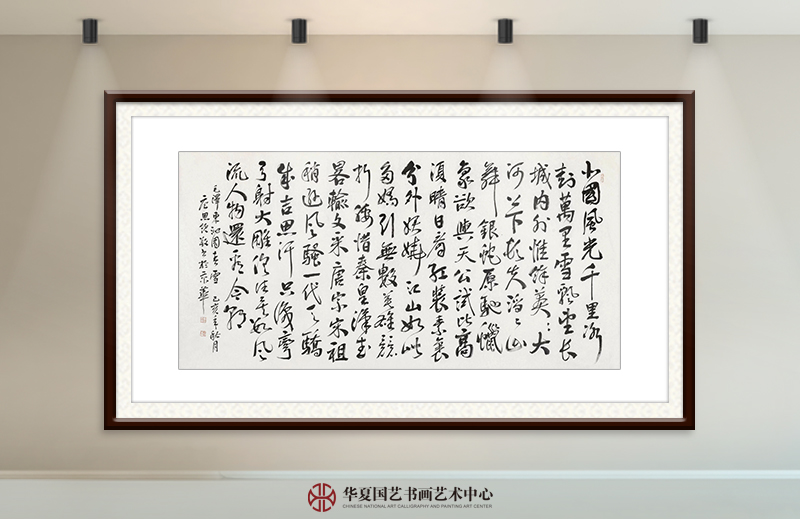 北國風光千里冰
封萬里雪飄望長
城内外惟餘莽〻大
河上下頓失滔〻山
舞銀蛇原馳蠟
象欲與天公試比高
須晴日看紅裝素裹
分外妖嬈江山如此
多嬌引無數英雄競
折腰惜秦皇漢武
畧輸文采唐宗宋祖
稍遜风騷一代天驕
成吉思汗只識彎
弓射大雕俱往矣數风
流人物還看今朝
毛澤東沁園春雪 己亥年秋月
書於京華
华夏国艺书画艺术中心
CHINESE NATIONAL ART CALLIGRAPHY AND PAINTING ART CENTER